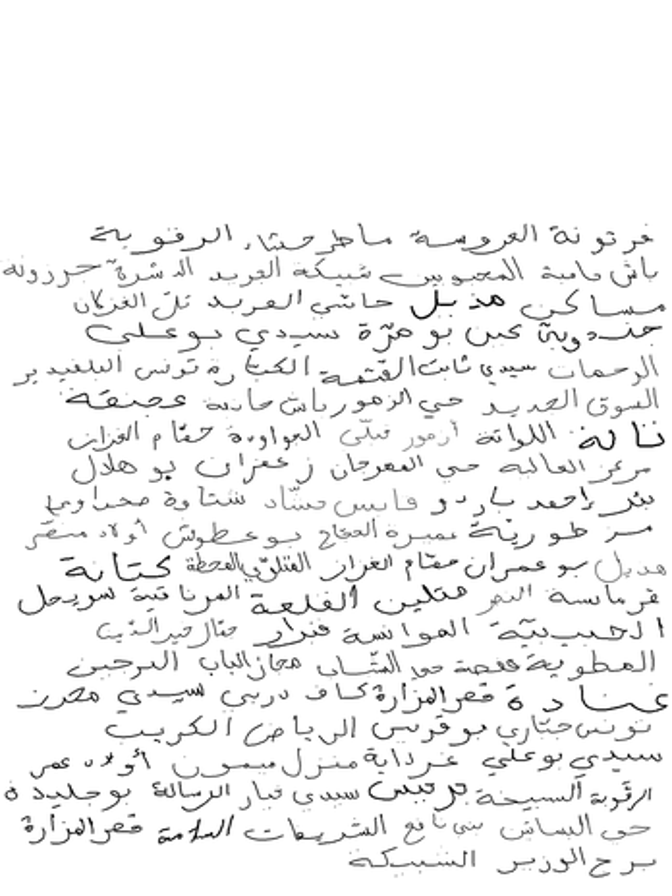 فرتونة العروسة ماطر حشاد الرضوية
باش حامبة المحبوبين شبيكة العريد الدشرة حرزونة
مساكن هذيل حاشي العريد تل الغزلان
جندوبة عين بو هرة سيدي بوعلي
الرحمات سيدي ثابت القتمة الكبارة تونس البلفيدير
السوق الجديد حي الزهور باش حامبة عجيقة
نالة اللواتة أزمور قبلي الجواودة حمام الغزاز
مركز العالية حي المهرجان زعفران بو هلال
بئر إحمد باردو قابس حشاد شتاوة
منزل حورية عميرة الحجاج بو عطوش أولاد مسقر
هذيل بو عمران حمام الغزاز المتلوي المحطة كتانة
غرماسة النصر متلين القلعة المرناقية سويحل
الحبيبية الموانسة فنزار جمال خير الدين
المطوية قفصة حي الشباب مجاز الباب البرجين
غنادة قصر المزارة كاف دربي سيدي محرز
تونس جباري بوقرنين الرياض الكريب
سيدي بوعلي غرداية منزل ميمون أولاد عمر
الرقوبة السبيخة برقيس سيدي فبار الرسالة بوجليدة
حي البساتين بني نافع الشريفات السلامة قصر المزارة
برج الوزير الشبيكة